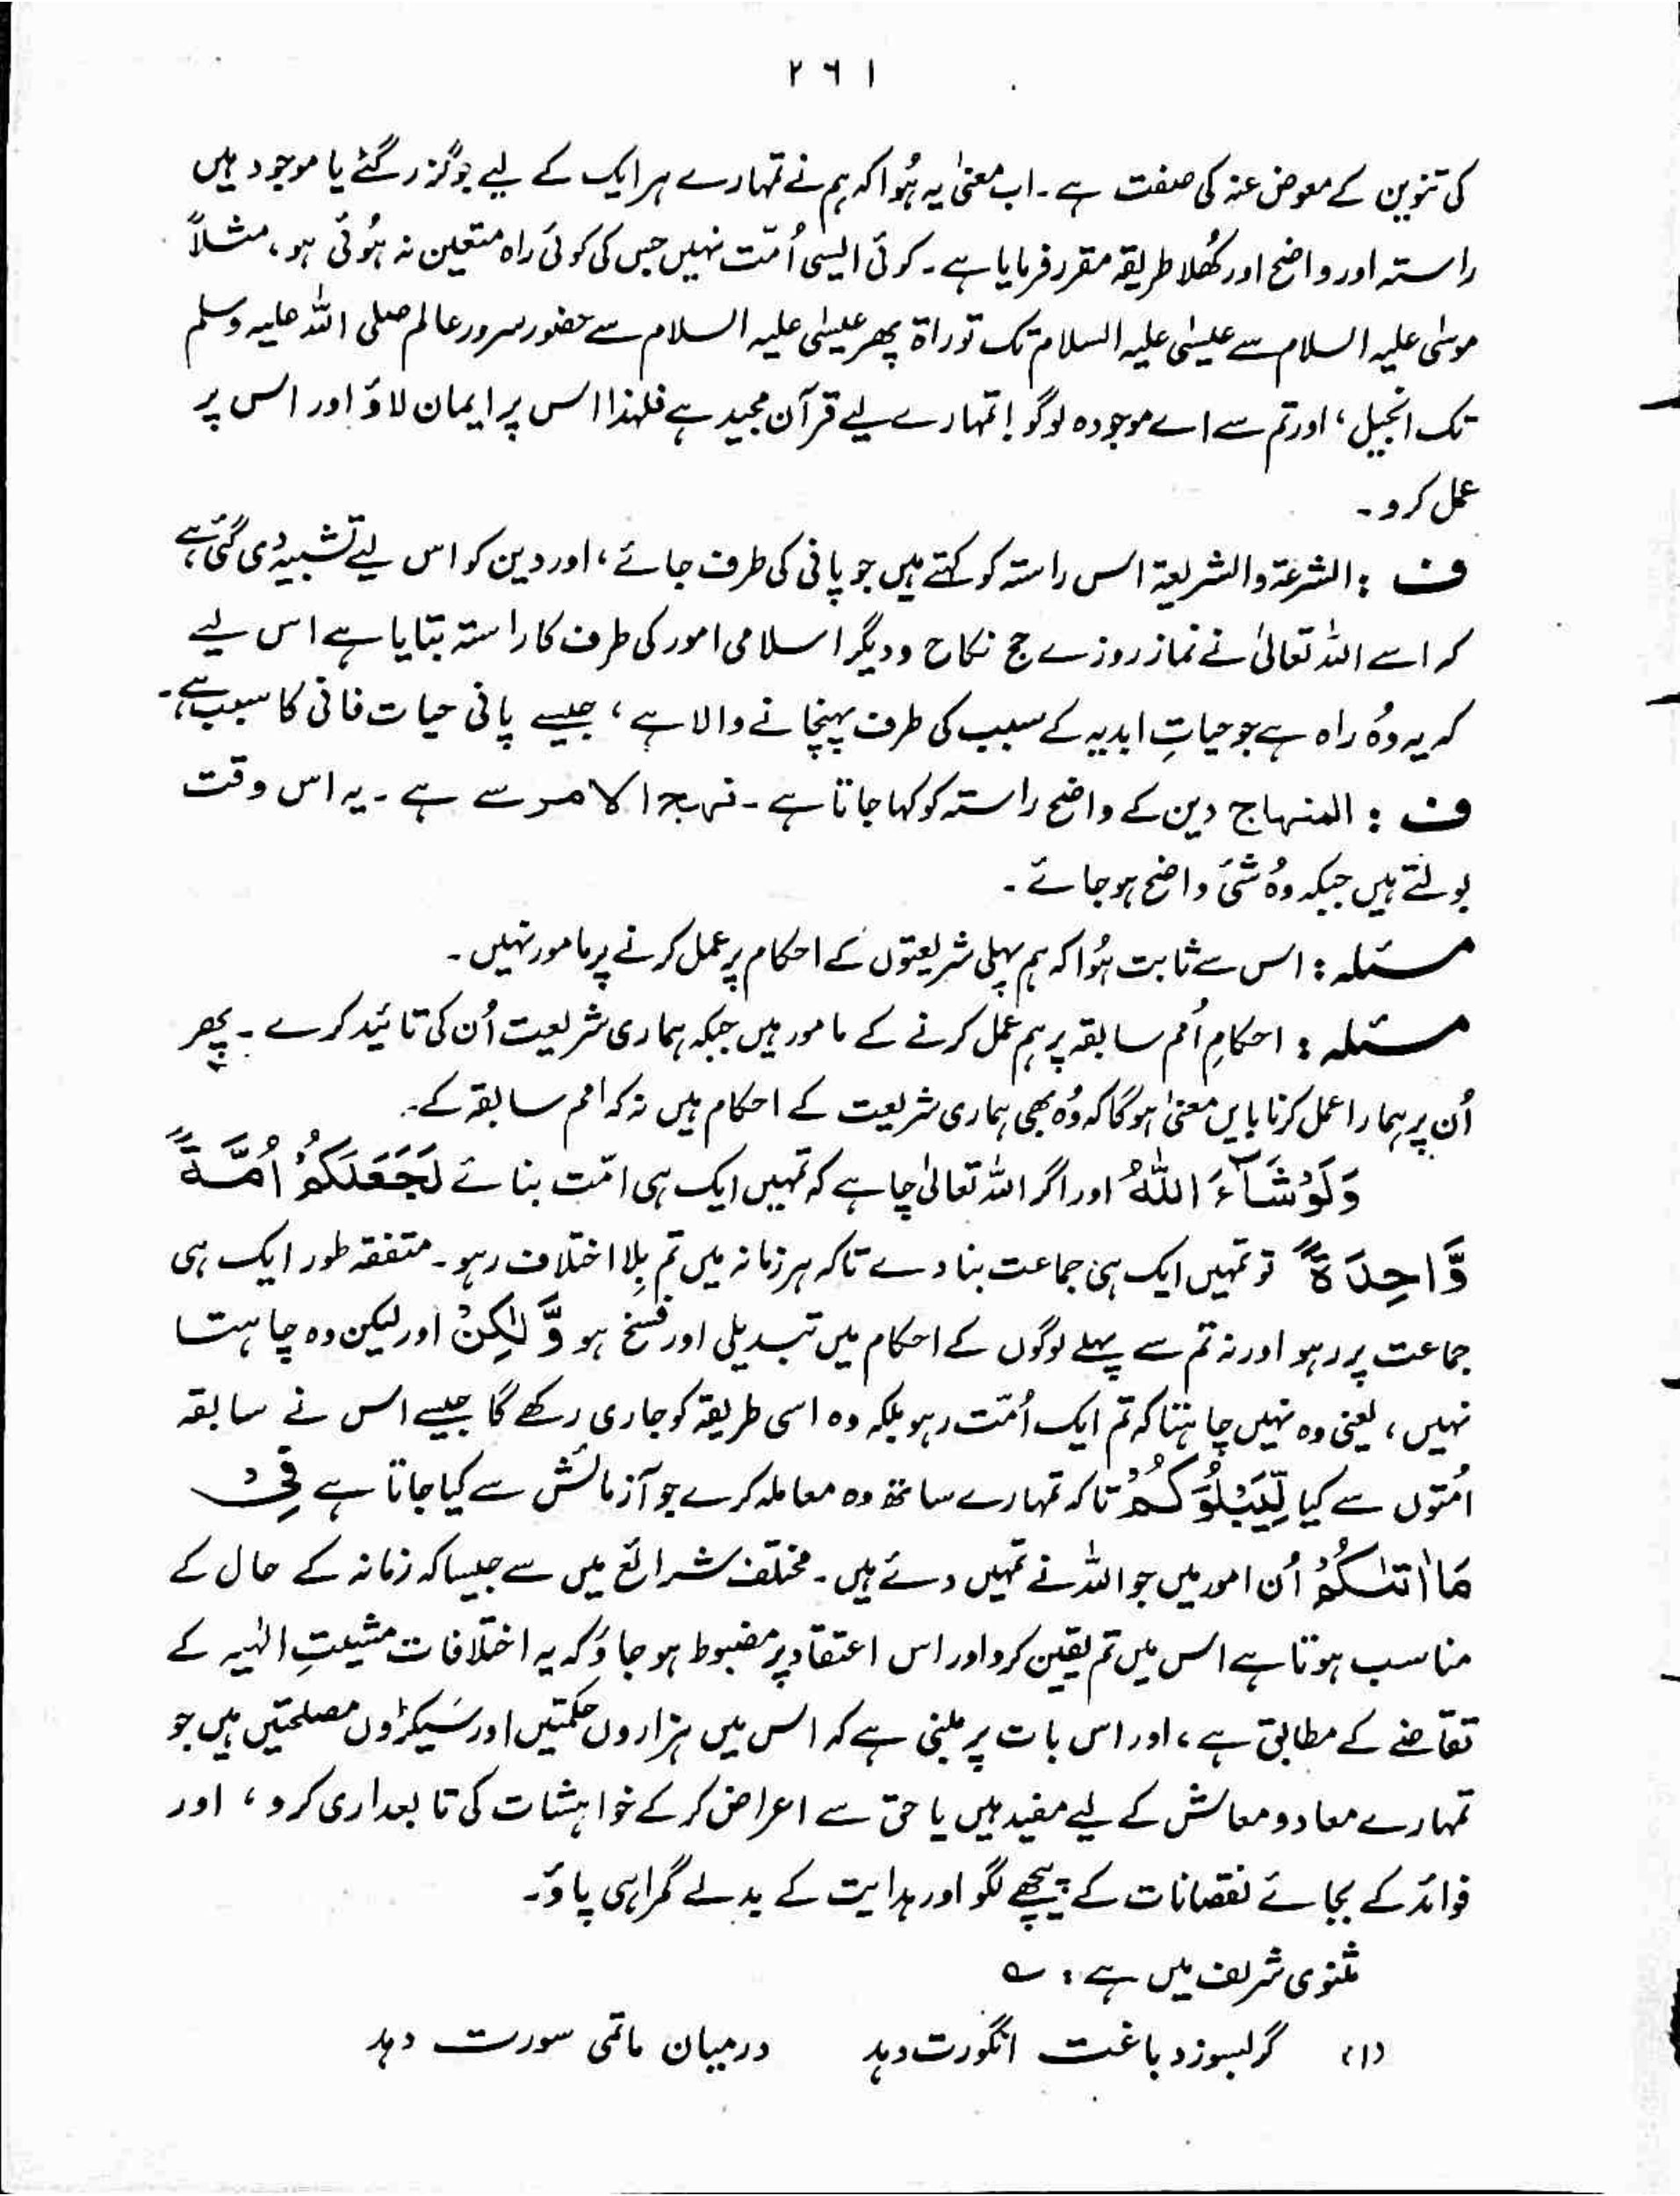 ۲۶۱
کی تنوین کے معوض عنہ کی صفت ہے۔ اب معنیٰ یہ ہُوا کہ ہم نے تمہارے ہر ایک کے لیے جو گزر گئے یا موجود ہیں
راستہ اور واضح اور کُھلا طریقہ مقرر فرمایا ہے۔ کوئی ایسی اُمّت نہیں جس کی کوئی راہ متعین نہ ہُوئی ہو، مثلاً
موسٰی علیہ السلام سے عیسٰی علیہ السلام تک توراۃ پھر عیسٰی علیہ السلام سے حضور سرورِ عالم صلی اللہ علیہ وسلم
تک انجیل، اور تم سے اے موجودہ لوگو! تمہارے لیے قرآن مجید ہے فلہٰذا اس پر ایمان لاؤ اور اس پر
عمل کرو۔
ف : الشرعۃ والشریعۃ اس راستہ کو کہتے ہیں جو پانی کی طرف جائے، اور دین کو اس لیے تشبیہ دی گئی ہے
کہ اسے اللہ تعالیٰ نے نماز روزے حج نکاح و دیگر اسلامی امور کی طرف کا راستہ بتایا ہے اس لیے
کہ یہ وُہ راہ ہے جو حیاتِ ابدیہ کے سبب کی طرف پہنچانے والا ہے، جیسے پانی حیات فانی کا سبب ہے۔
ف : المنہاج دین کے واضح راستہ کو کہا جاتا ہے۔ نہج الامر سے ہے۔ یہ اس وقت
بولتے ہیں جبکہ وُہ شئ واضح ہو جائے۔
مسئلہ : اس سے ثابت ہُوا کہ ہم پہلی شریعتوں کے احکام پر عمل کرنے پر مامور نہیں۔
مسئلہ : احکامِ اُمم سابقہ پر ہم عمل کرنے کے مامور ہیں جبکہ ہماری شریعت اُن کی تائید کرے۔ پھر
اُن پر ہمارا عمل کرنا بایں معنیٰ ہوگا کہ وُہ بھی ہماری شریعت کے احکام ہیں نہ کہ امم سابقہ کے۔
وَلَوْ شَآءَ اللّٰهُ اور اگر اللہ تعالیٰ چاہے کہ تمہیں ایک ہی امّت بنائے لَجَعَلَكُمْ اُمَّةً
وَّاحِدَةً تو تمہیں ایک ہی جماعت بنا دے تاکہ ہر زمانہ میں تم بِلا اختلاف رہو۔ متفقہ طور ایک ہی
جماعت پر رہو اور نہ تم سے پہلے لوگوں کے احکام میں تبدیلی اور فسخ ہو وَّلٰكِنْ اور لیکن وہ چاہتا
نہیں، یعنی وہ نہیں چاہتا کہ تم ایک اُمّت رہو بلکہ وہ اسی طریقہ کو جاری رکھے گا جیسے اس نے سابقہ
اُمتوں سے کیا لِّيَبْلُوَكُمْ تاکہ تمہارے ساتھ وہ معاملہ کرے جو آزمائش سے کیا جاتا ہے فِیْ
مَا اٰتٰىكُمْ اُن امور میں جو اللہ نے تمہیں دئے ہیں۔ مختلف شرائع میں سے جیسا کہ زمانہ کے حال کے
مناسب ہوتا ہے اس میں تم یقین کرو اور اس اعتقاد پر مضبوط ہو جاؤ کہ یہ اختلافات مشیتِ الٰہیہ کے
تقاضے کے مطابق ہے، اور اس بات پر مبنی ہے کہ اس میں ہزاروں حکمتیں اور سَیکڑوں مصلحتیں ہیں جو
تمہارے معاد و معاش کے لیے مفید ہیں یا حق سے اعراض کرکے خواہشات کی تابعداری کرو، اور
فوائد کے بجائے نقصانات کے پیچھے لگو اور ہدایت کے بدلے گمراہی پاؤ۔
مثنوی شریف میں ہے : ؎
(۱) گر بسوزد باغت انگورت دہد درمیان ماتمی سورت دہد